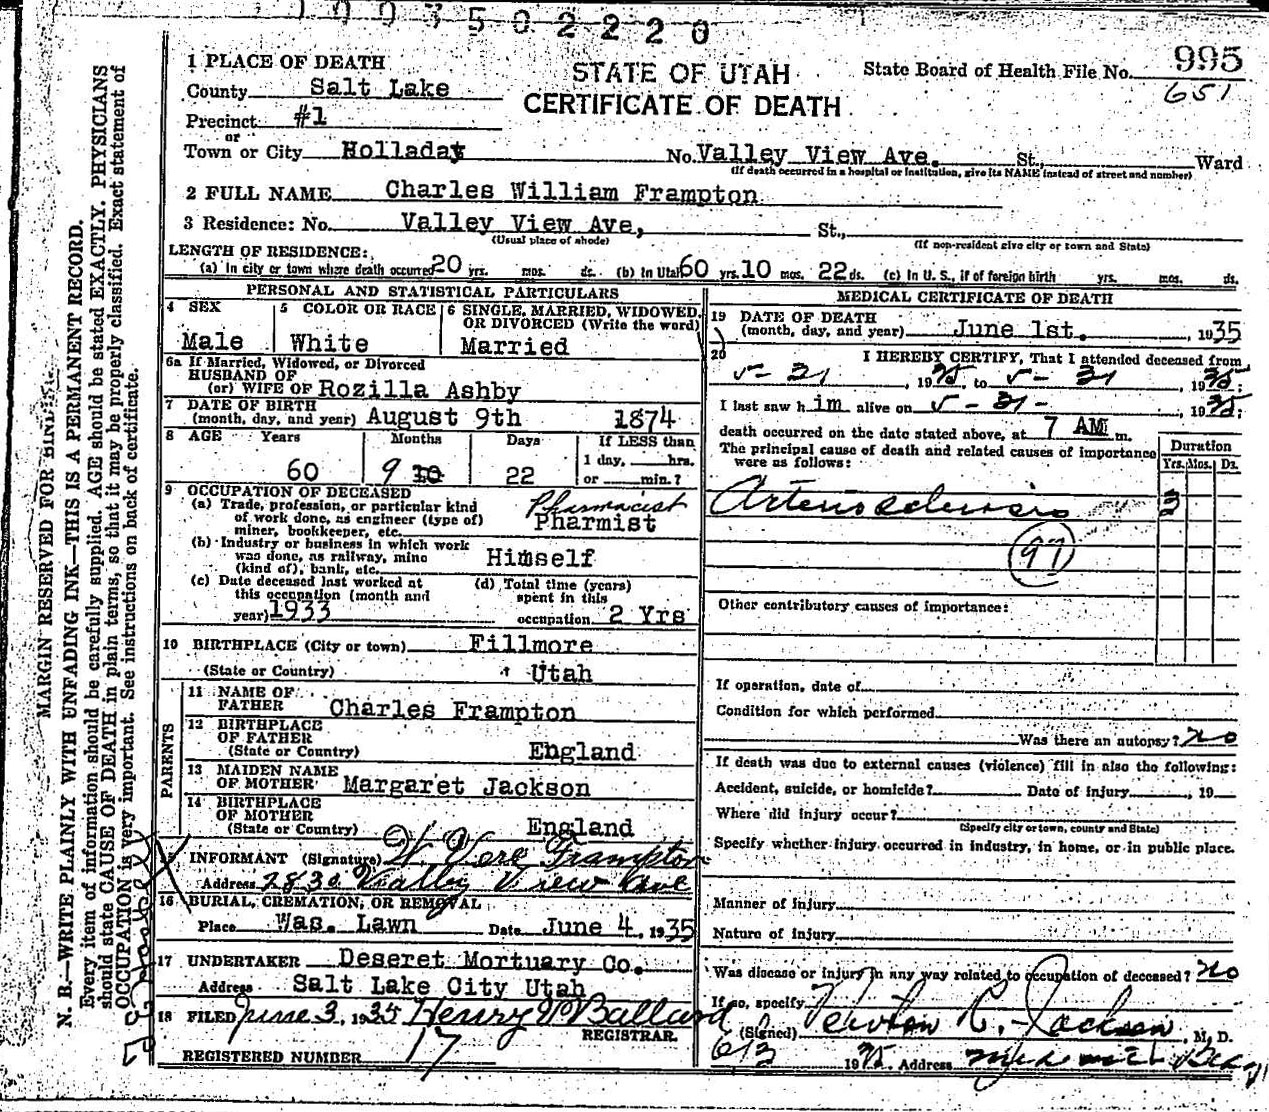 1 PLACE OF DEATH
County Salt Lake
Precinct #1
or
Town or City Holladay
STATE OF UTAH
CERTIFICATE OF DEATH
State Board of Health File No. 995
651
No. Valley View Ave. St., Ward
(If death occurred in a hospital or institution, give its NAME instead of street and number)
2 FULL NAME Charles William Frampton
3 Residence: No. Valley View Ave, St.,
(Usual place of abode) (If non-resident give city or town and State)
LENGTH OF RESIDENCE:
(a) In city or town where death occurred 20 yrs. mos. ds. (b) In Utah 60 yrs. 10 mos. 22 ds. (c) In U. S., if of foreign birth yrs. mos. ds.
PERSONAL AND STATISTICAL PARTICULARS
4 SEX 5 COLOR OR RACE 6 SINGLE, MARRIED, WIDOWED, OR DIVORCED (Write the word)
Male White Married
6a If Married, Widowed, or Divorced
HUSBAND OF
(or) WIFE OF Rozilla Ashby
7 DATE OF BIRTH
(month, day, and year) August 9th 1874
8 AGE Years Months Days If LESS than
1 day, hrs.
60 9 10 22 or min.?
9 OCCUPATION OF DECEASED
(a) Trade, profession, or particular kind
of work done, as engineer (type of)
miner, bookkeeper, etc. Pharmacist
Pharmist
(b) Industry or business in which work
was done, as railway, mine
(kind of), bank, etc. Himself
(c) Date deceased last worked at
this occupation (month and
year) 1933
(d) Total time (years)
spent in this
occupation 2 Yrs
10 BIRTHPLACE (City or town) Fillmore
(State or Country) Utah
PARENTS
11 NAME OF
FATHER Charles Frampton
12 BIRTHPLACE
OF FATHER
(State or Country) England
13 MAIDEN NAME
OF MOTHER Margaret Jackson
14 BIRTHPLACE
OF MOTHER
(State or Country) England
15 INFORMANT (Signature) W. Vere Frampton
Address 2830 Valley View Ave
16 BURIAL, CREMATION, OR REMOVAL
Place Was. Lawn Date June 4, 1935
17 UNDERTAKER Deseret Mortuary Co.
Address Salt Lake City Utah
18 FILED June 3, 1935 Henry W Ballard
REGISTRAR.
REGISTERED NUMBER 17
MEDICAL CERTIFICATE OF DEATH
19 DATE OF DEATH
(month, day, and year) June 1st. , 1935
20 I HEREBY CERTIFY, That I attended deceased from
5-21, 1935, to 5-31, 1935;
I last saw him alive on 5-31-, 1935;
death occurred on the date stated above, at 7 AM m.
The principal cause of death and related causes of importance
were as follows:
Duration
Yrs. Mos. Ds.
Arteriosclerosis 3
97
Other contributory causes of importance:
If operation, date of
Condition for which performed
Was there an autopsy? no
If death was due to external causes (violence) fill in also the following:
Accident, suicide, or homicide? Date of injury , 19
Where did injury occur?
(Specify city or town, county and State)
Specify whether injury occurred in industry, in home, or in public place.
Manner of injury
Nature of injury
Was disease or injury in any way related to occupation of deceased? no
If so, specify
(Signed) Newton R. Jackson, M. D.
6/3 1935. Address
MARGIN RESERVED FOR BINDING
N. B.—WRITE PLAINLY WITH UNFADING INK—THIS IS A PERMANENT RECORD.
Every item of information should be carefully supplied. AGE should be stated EXACTLY. PHYSICIANS
should state CAUSE OF DEATH in plain terms, so that it may be properly classified. Exact statement of
OCCUPATION is very important. See instructions on back of certificate.